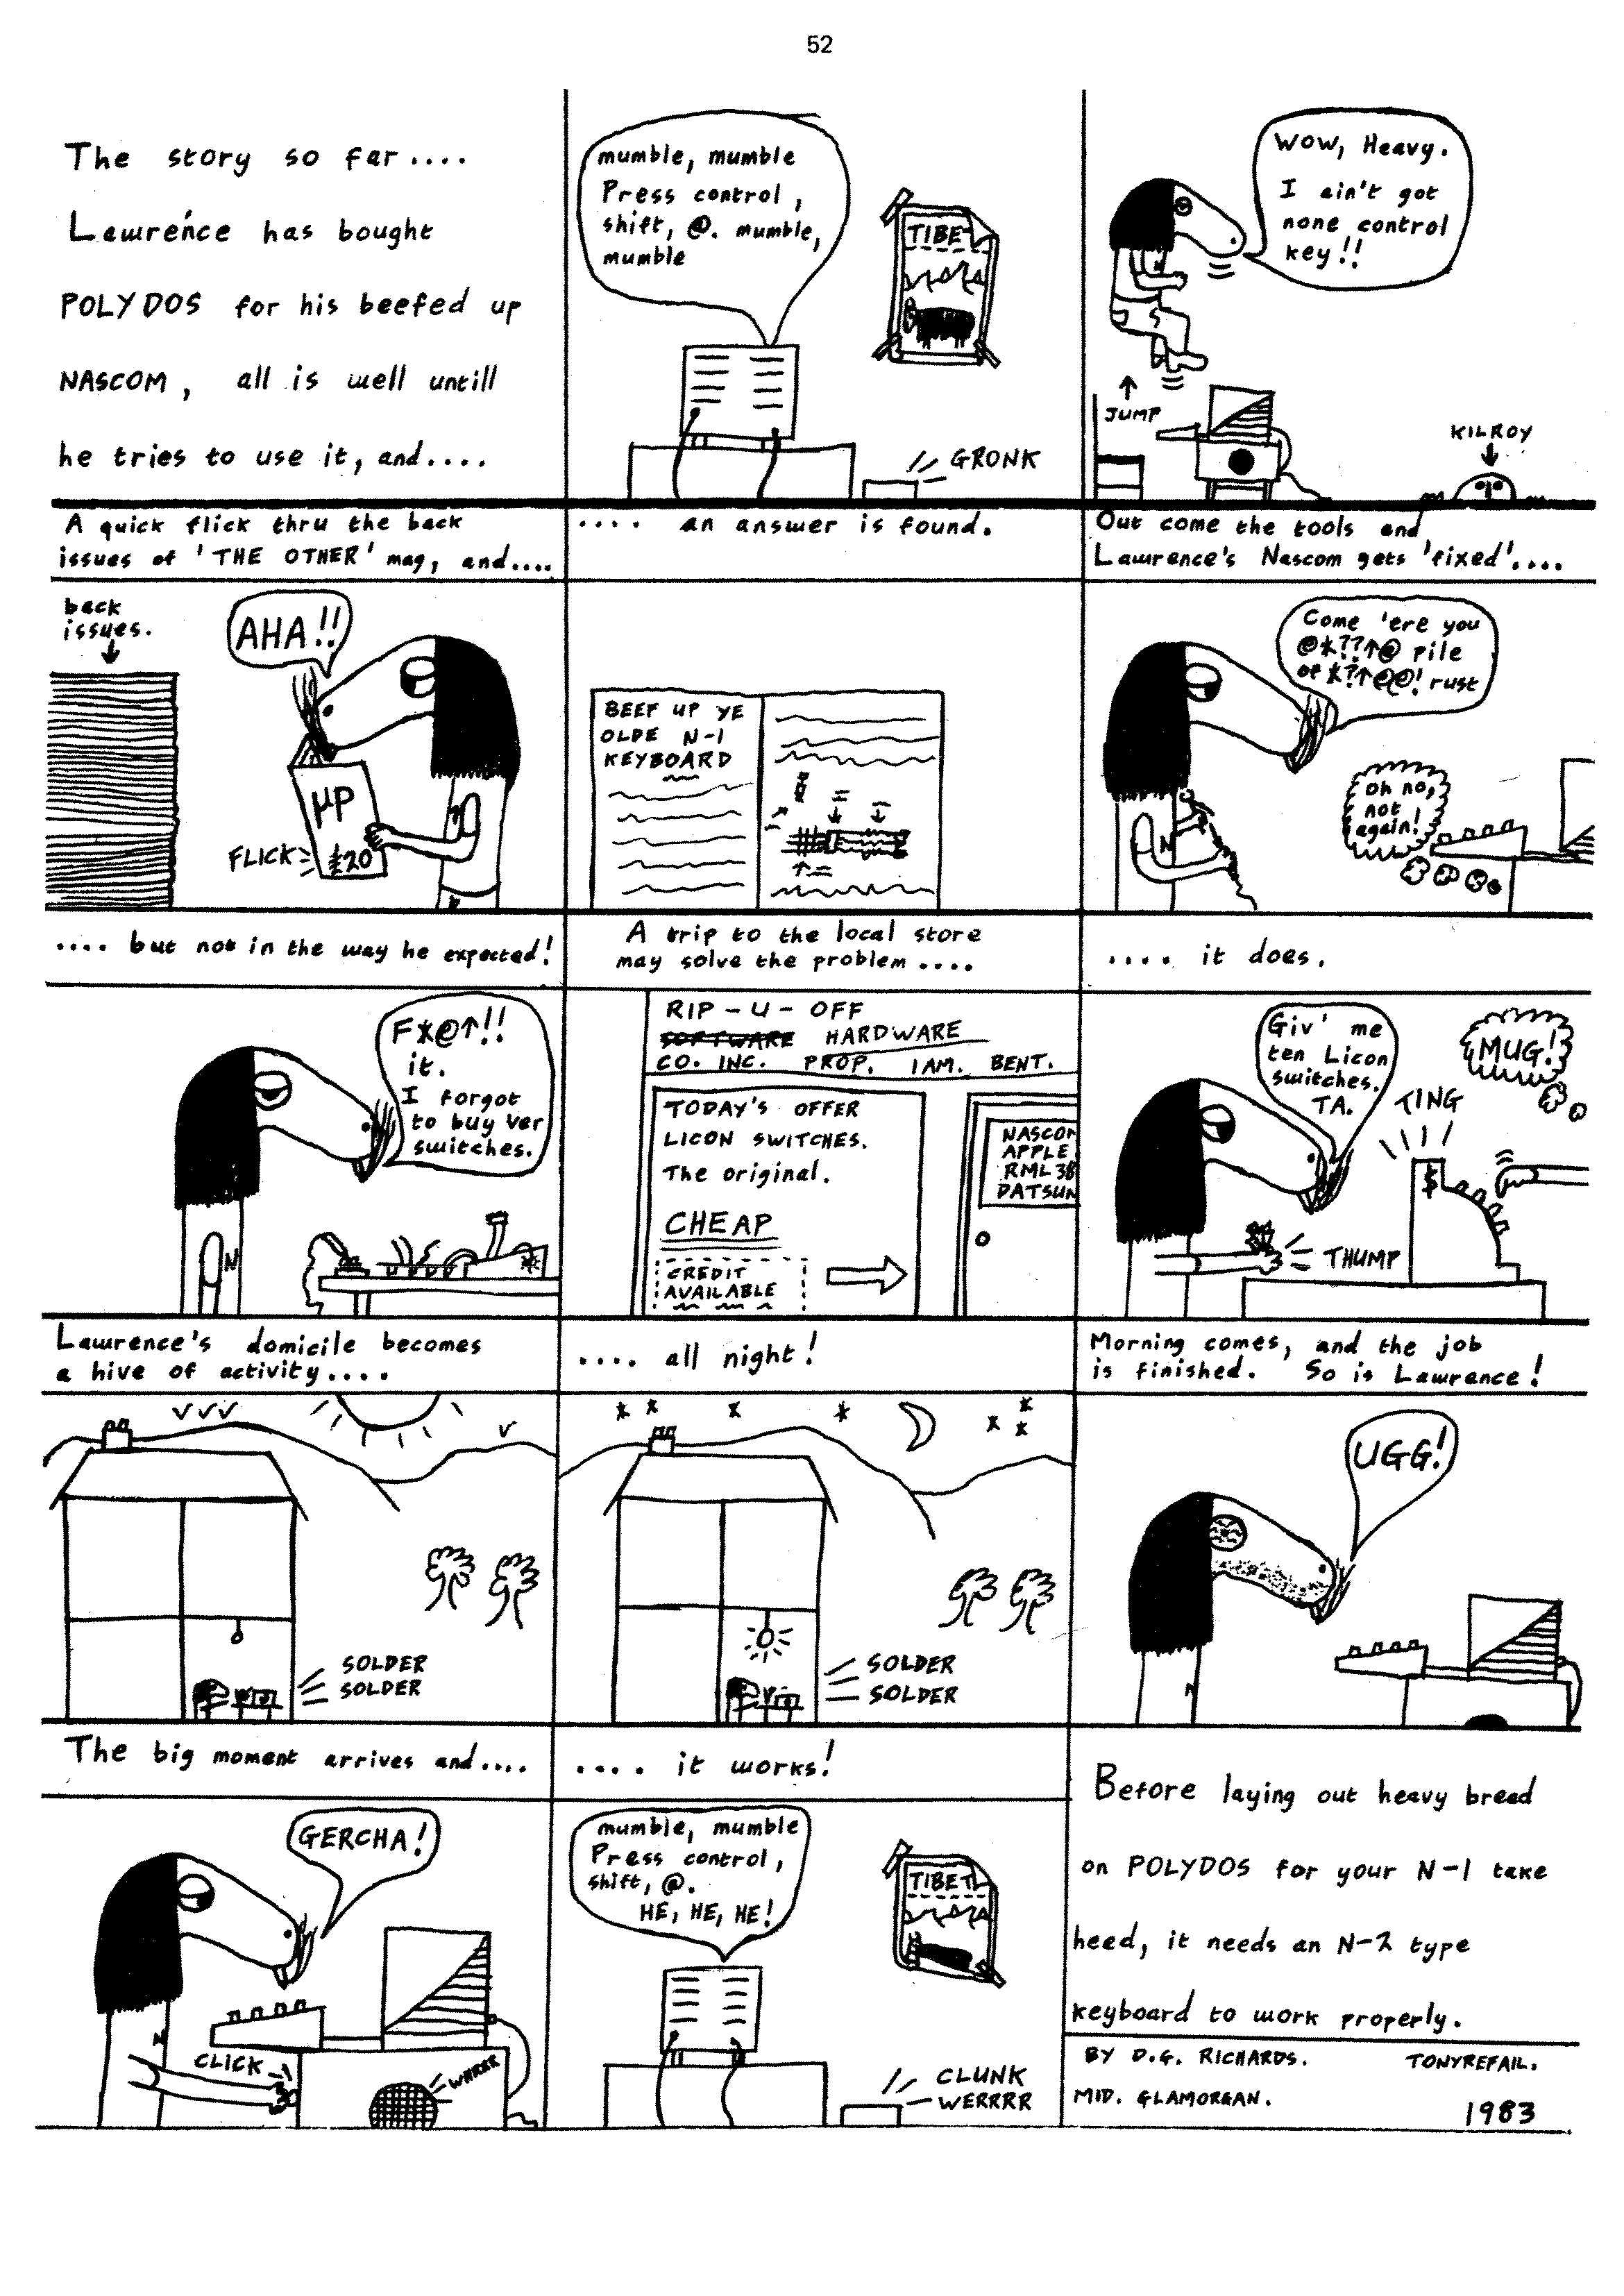 52
The story so far....
Lawrence has bought
POLYDOS for his beefed up
NASCOM, all is well untill
he tries to use it, and....
mumble, mumble
Press control,
shift, @. mumble,
mumble
TIBET
GRONK
Wow, Heavy.
I ain't got
none control
key!!
JUMP
KILROY
A quick flick thru the back
issues of 'THE OTHER' mag, and....
back
issues.
AHA!!
µP
FLICK
£20
.... an answer is found.
BEEF UP YE
OLDE N-1
KEYBOARD
Out come the tools and
Lawrence's Nascom gets 'fixed'....
Come 'ere you
@*??↑@ pile
of *?↑@@! rust
N
Oh no,
not
again!
.... but not in the way he expected!
F*@↑!!
it.
I forgot
to buy ver
switches.
N
A trip to the local store
may solve the problem....
RIP-U-OFF
SOFTWARE HARDWARE
CO. INC. PROP. I AM. BENT.
TODAY'S OFFER
LICON SWITCHES.
The original.
CHEAP
CREDIT
AVAILABLE
NASCOM
APPLE
RML 38
DATSUN
.... it does.
Giv' me
ten Licon
switches.
TA.
TING
MUG!
$
THUMP
Lawrence's domicile becomes
a hive of activity....
SOLDER
SOLDER
.... all night!
SOLDER
SOLDER
Morning comes, and the job
is finished. So is Lawrence!
UGG!
N
The big moment arrives and....
GERCHA!
N
CLICK
WHRRR
.... it works!
mumble, mumble
Press control,
shift, @.
HE, HE, HE!
TIBET
CLUNK
WERRRR
Before laying out heavy bread
on POLYDOS for your N-1 take
heed, it needs an N-2 type
keyboard to work properly.
BY D.G. RICHARDS. TONYREFAIL.
MID. GLAMORGAN.
1983